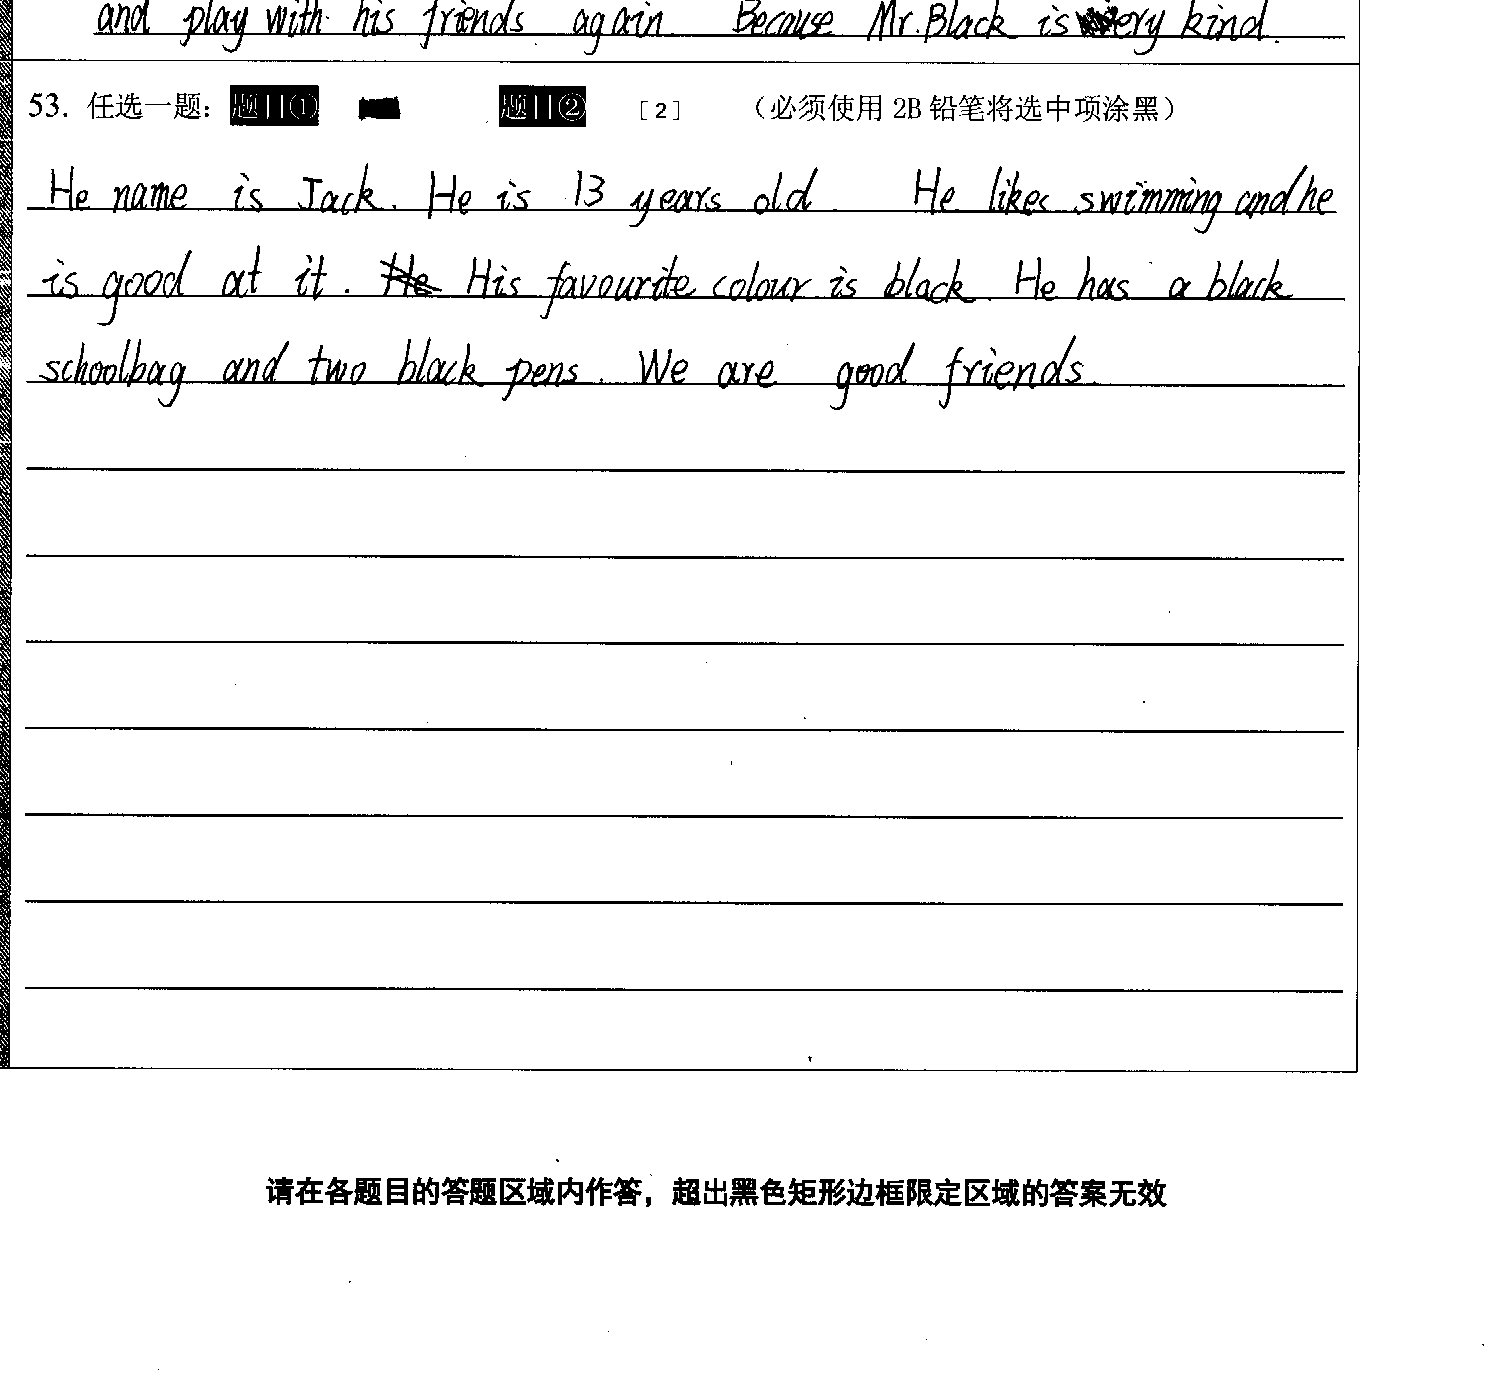 and play with his friends again. Because Mr. Black is very kind.
53. 任选一题： 题目① 题目② [2] （必须使用 2B 铅笔将选中项涂黑）
He name is Jack. He is 13 years old. He likes swimming and he
is good at it. He His favourite colour is black. He has a black
schoolbag and two black pens. We are good friends.
请在各题目的答题区域内作答，超出黑色矩形边框限定区域的答案无效